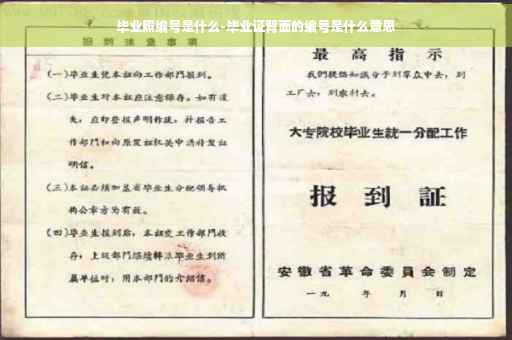 毕业照编号是什么-毕业证背面的编号是什么意思
报到注意事项
(一)毕业生凭本証向工作部門报到。
(二)毕业生对本証应注意保存。如有遗
失，应即登报声明作废，并报告工
作部門和向原发証机关申請补发証
明信。
(三)本証必须加盖省毕业生分配领导机
构公章方为有效。
(四)毕业生报到后，本証交工作部門收
存；上级部門
毕业生到所
属单位时，用本部門的介紹信。
最高指示
我們提倡知識分子到羣众中去，到
工厂去，到农村去。
大专院校毕业生統一分配工作
报到証
安徽省革命委員会制定
一九 年 月 日